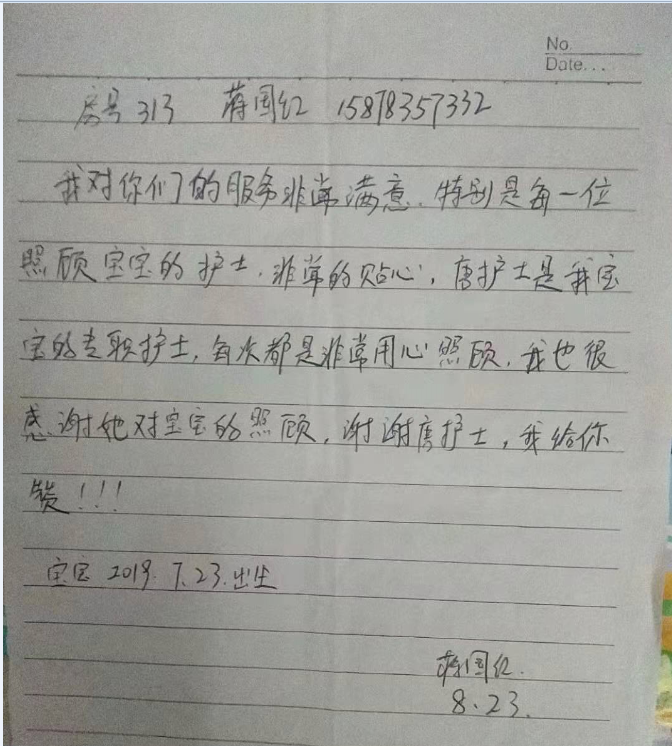 No.
Date...
房号 313 蒋国红 15878357332
我对你们的服务非常满意.特别是每一位
照顾宝宝的护士.非常的贴心,唐护士是我宝
宝的专职护士,每次都是非常用心照顾.我也很
感谢她对宝宝的照顾,谢谢唐护士,我给你
赞!!!
宝宝 2019.7.23.出生
蒋国红.
8.23.